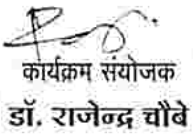 कार्यक्रम संयोजक
डॉ. राजेन्द्र चौबे